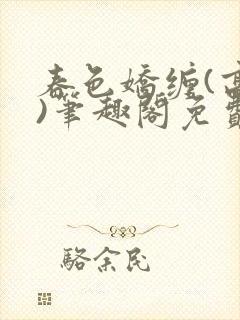 春色嬌缠(高
)筆趣閣免費
駱余民